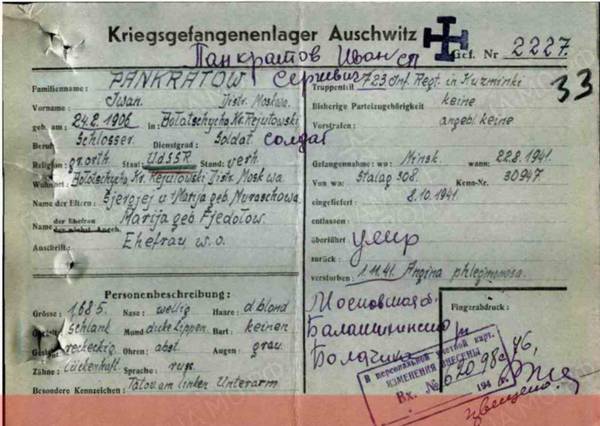 Kriegsgefangenenlager Auschwitz
Gef. Nr 2227.
Панкратов Иван
Сергеевич
33
Familienname: PANKRATOW
Truppenteil 723 Inf. Regt. in Kuzminki
Vorname: Iwan. Distr. Moskwa.
Bisherige Parteizugehörigkeit keine
geb. am 24.2.1906 in: Bolatschycha Kr. Rejutowski
Vorstrafen: angebl. keine
Beruf: Schlosser. Dienstgrad: Soldat солдат
Religion: gr.orth Staat: UdSSR Stand: verh.
Gefangennahme: wo: Minsk. wann: 22.8.1941.
Wohnort: Bolatschycha Kr. Rejutowski Distr. Moskwa
Von wo: Stalag 308. Kenn-Nr. 30947.
Name der Eltern: Sjergjej u Marija geb. Muraschowa.
eingeliefert: 8.10.1941.
der Ehefrau
Name Marija geb Fjedotow.
entlassen:
Anschrift: Ehefrau w.o.
überführt умер
zurück:
verstorben: 1.11.41. Angina phlegmonosa.
Personenbeschreibung:
Grösse: 1,68 5. Nase: wellig Haare: d.blond
Gestalt: schlank Mund dicke Lippen. Bart: keinen
Gesicht: rechteckig Ohren: abst. Augen: grau.
Zähne: lückenhaft. Sprache: russ.
Besondere Kennzeichen: Tätow. am linken Unterarm
Московская о.
Балашихинский р
Fingerabdruck:
В персональной учетной карт.
ИЗМЕНЕНИЯ ВНЕСЕНЫ
Вх. №
194